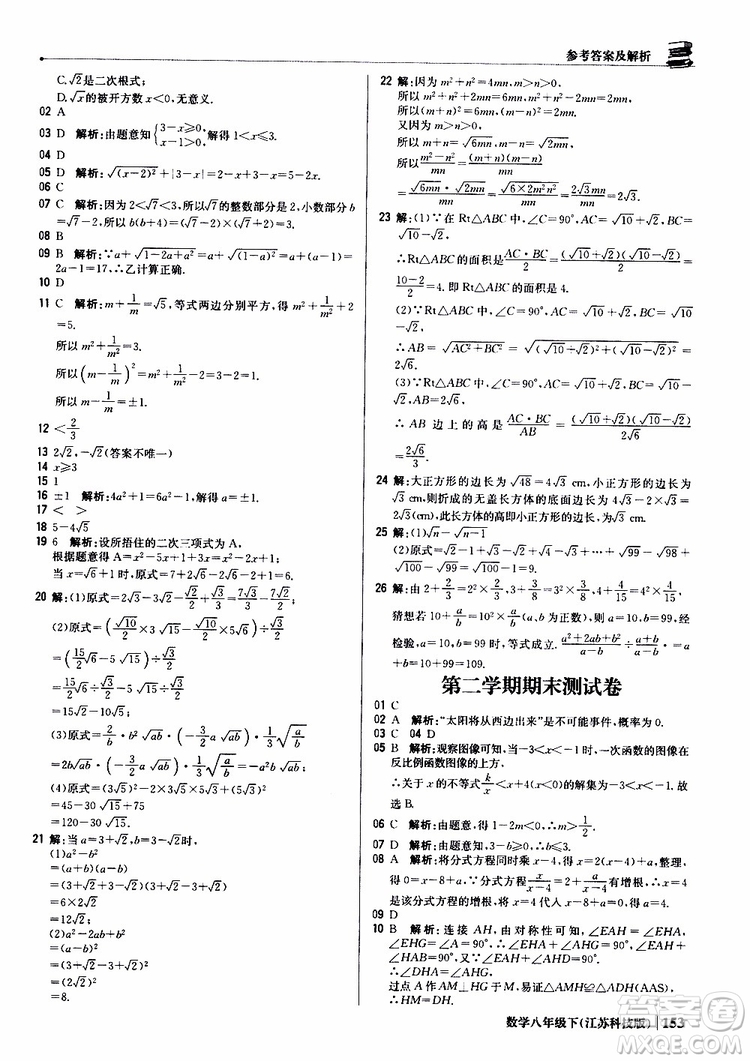 参考答案及解析
C.√2是二次根式;
D.√x的被开方数x<0,无意义.
02 A
03 D 解析:由题意知{3-x≥0, x-1>0}解得1<x≤3.
04 D
05 D 解析:√(x-2)²+|3-x|=2-x+3-x=5-2x.
06 C
07 C 解析:因为2<√7<3,所以√7的整数部分是2,小数部分b
=√7-2,所以b(b+4)=(√7-2)×(√7-2+4)=3.
08 B
09 B 解析:∵a+√(1-2a+a²)=a+√(1-a)²=a+(a-1)=
2a-1=17,∴乙计算正确.
10 D
11 C 解析:m+1/m=√5,等式两边分别平方,得m²+1/m²+2
=5.
所以m²+1/m²=3.
所以(m-1/m)²=m²+1/m²-2=3-2=1.
所以m-1/m=±1.
12 <2/3
13 2√2,-√2(答案不唯一)
14 x≥3
15 1
16 ±1 解析:4a²+1=6a²-1,∴a=±1.
17 < >
18 5-4√5
19 6 解析:设所捂住的二次三项式为A,
根据题意得A=x²-5x+1+3x=x²-2x+1.
当x=√6+1时,原式=(x-1)²=(√6+1-1)²=6.
20 解:(1)原式=2√3-3√2-√2/2+√3/2=5√3/2-7√2/2.
(2)原式=(√10/2×3√15-√10/2×5√6)÷√2/√3
=(√15/2×6√2-√15/2×2√2)÷√2/√3
=√15/2×4√2÷√2/√3
=15√2-10√5.
(3)原式=2/b·(-3/2)·a√ab·b²√ab·1/3√(a/b)
=2b√ab·(-3/2)a√ab·1/3√(a/b)
=-a²b√ab.
(4)原式=(3√5)²-2×3√5×5√3+(5√3)²
=45-30√15+75
=120-30√15.
21 解:当a=3+√2,b=3-√2时,
(1)a²-b²
=(a+b)(a-b)
=(3+√2+3-√2)(3+√2-3+√2)
=6×2√2
=12√2;
(2)a²-2ab+b²
=(a-b)²
=(3+√2-3+√2)²
=(2√2)²
=8.
22 解:因为m²+n²=4mn,m>n>0,
所以m²+2mn+n²=6mn,m²-2mn+n²=2mn.
又因为m>n>0,
所以m+n=√6mn,m-n=√2mn.
所以(m²-n²)/mn=(m+n)(m-n)/mn=
√6mn·√2mn/mn=√(6×2m²n²)/mn=2√3.
23 解:(1)∵在Rt△ABC中,∠C=90°,AC=√10+√2,BC=
√10-√2,
∴Rt△ABC的面积是AC·BC/2=(√10+√2)(√10-√2)/2=
(10-2)/2=4.即Rt△ABC的面积是4.
(2)∵Rt△ABC中,∠C=90°,AC=√10+√2,BC=√10
-√2,
∴AB=√(AC²+BC²)=√((√10+√2)²+(√10-√2)²)=2√6.
(3)∵Rt△ABC中,∠C=90°,AC=√10+√2,BC=√10
-√2,AB=2√6,
∴AB边上的高是AC·BC/AB=(√10+√2)(√10-√2)/2√6
=2√6/3.
24 解:大正方形的边长为√48=4√3 cm,小正方形的边长为√3
cm,则折成的无盖长方体的底面边长为4√3-2√3=
2√3(cm),此长方体的高即小正方形的边长为√3 cm.
25 解:(1)√n-√(n-1)
(2)原式=√2-1+√3-√2+√4-√3+…+√100-√99=
√100-1=9.
26 解:由2+2/3=2²×2/3,3+3/8=3²×3/8,4+4/15=4²×4/15,
猜想若10+a/b=10²×a/b(a,b为正数),则a=10,b=99,经
检验,a=10,b=99时,等式成立.(a²+2ab+b²)/b÷(a+b)/b=a
+b=10+99=109.
第二学期期末测试卷
01 C
02 A 解析:“太阳将从西边出来”是不可能事件,概率为0.
03 C 04 D
05 B 解析:观察图像可知,当-3<x<-1时,一次函数的图像在
反比例函数图像的上方.
∴关于x的不等式k/x<x+4(x<0)的解集为-3<x<-1.故
选B.
06 C 解析:由题意,得1-2m<0,∴m>1/2.
07 D 解析:由题意知,2-x≥0,∴x≤2.
08 A 解析:将分式方程同时乘x-4,得x-2(x-4)=-a,整理,
得x=8+a.∵分式方程x/(x-4)=2+a/(4-x)有增根,∴x=4应
是该分式方程的增根,将x=4代入x=8+a,得a=-4.
09 D
10 B 解析:连接AH,由对称性可知,∠EAH=∠EHA,
∠EHG=∠EAD=90°,∴∠EAH+∠DAH=∠EHA+
∠AHG=90°,
∴∠DHA=∠AHG,
过点A作AM⊥HG于点M,易证△AMH≌△ADH(AAS),
∴HM=DH.
数学八年级下(江苏科技版) 153